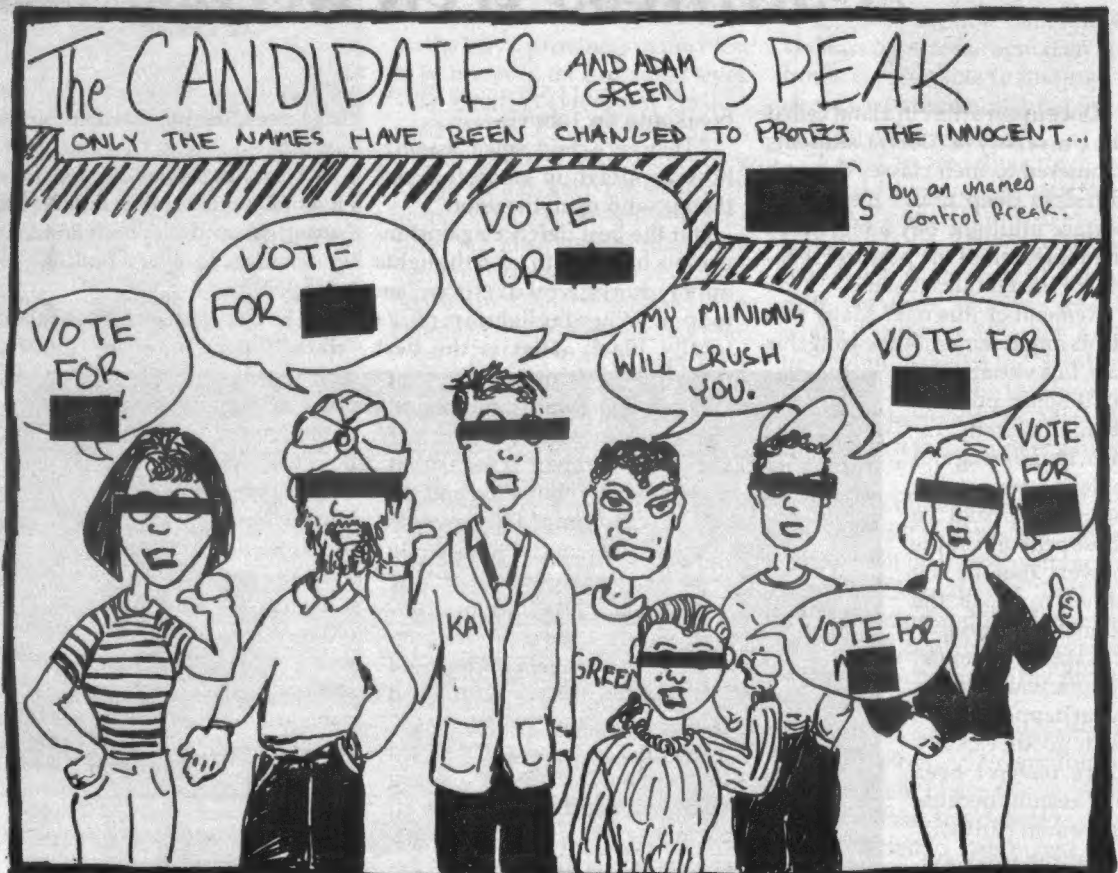 The CANDIDATES AND ADAM GREEN SPEAK
ONLY THE NAMES HAVE BEEN CHANGED TO PROTECT THE INNOCENT...
S by an unamed
control freak.
VOTE
FOR
!
VOTE
FOR
VOTE
FOR
MY MINIONS
WILL CRUSH
YOU.
VOTE FOR
VOTE
FOR
VOTE FOR
KA
GREEN